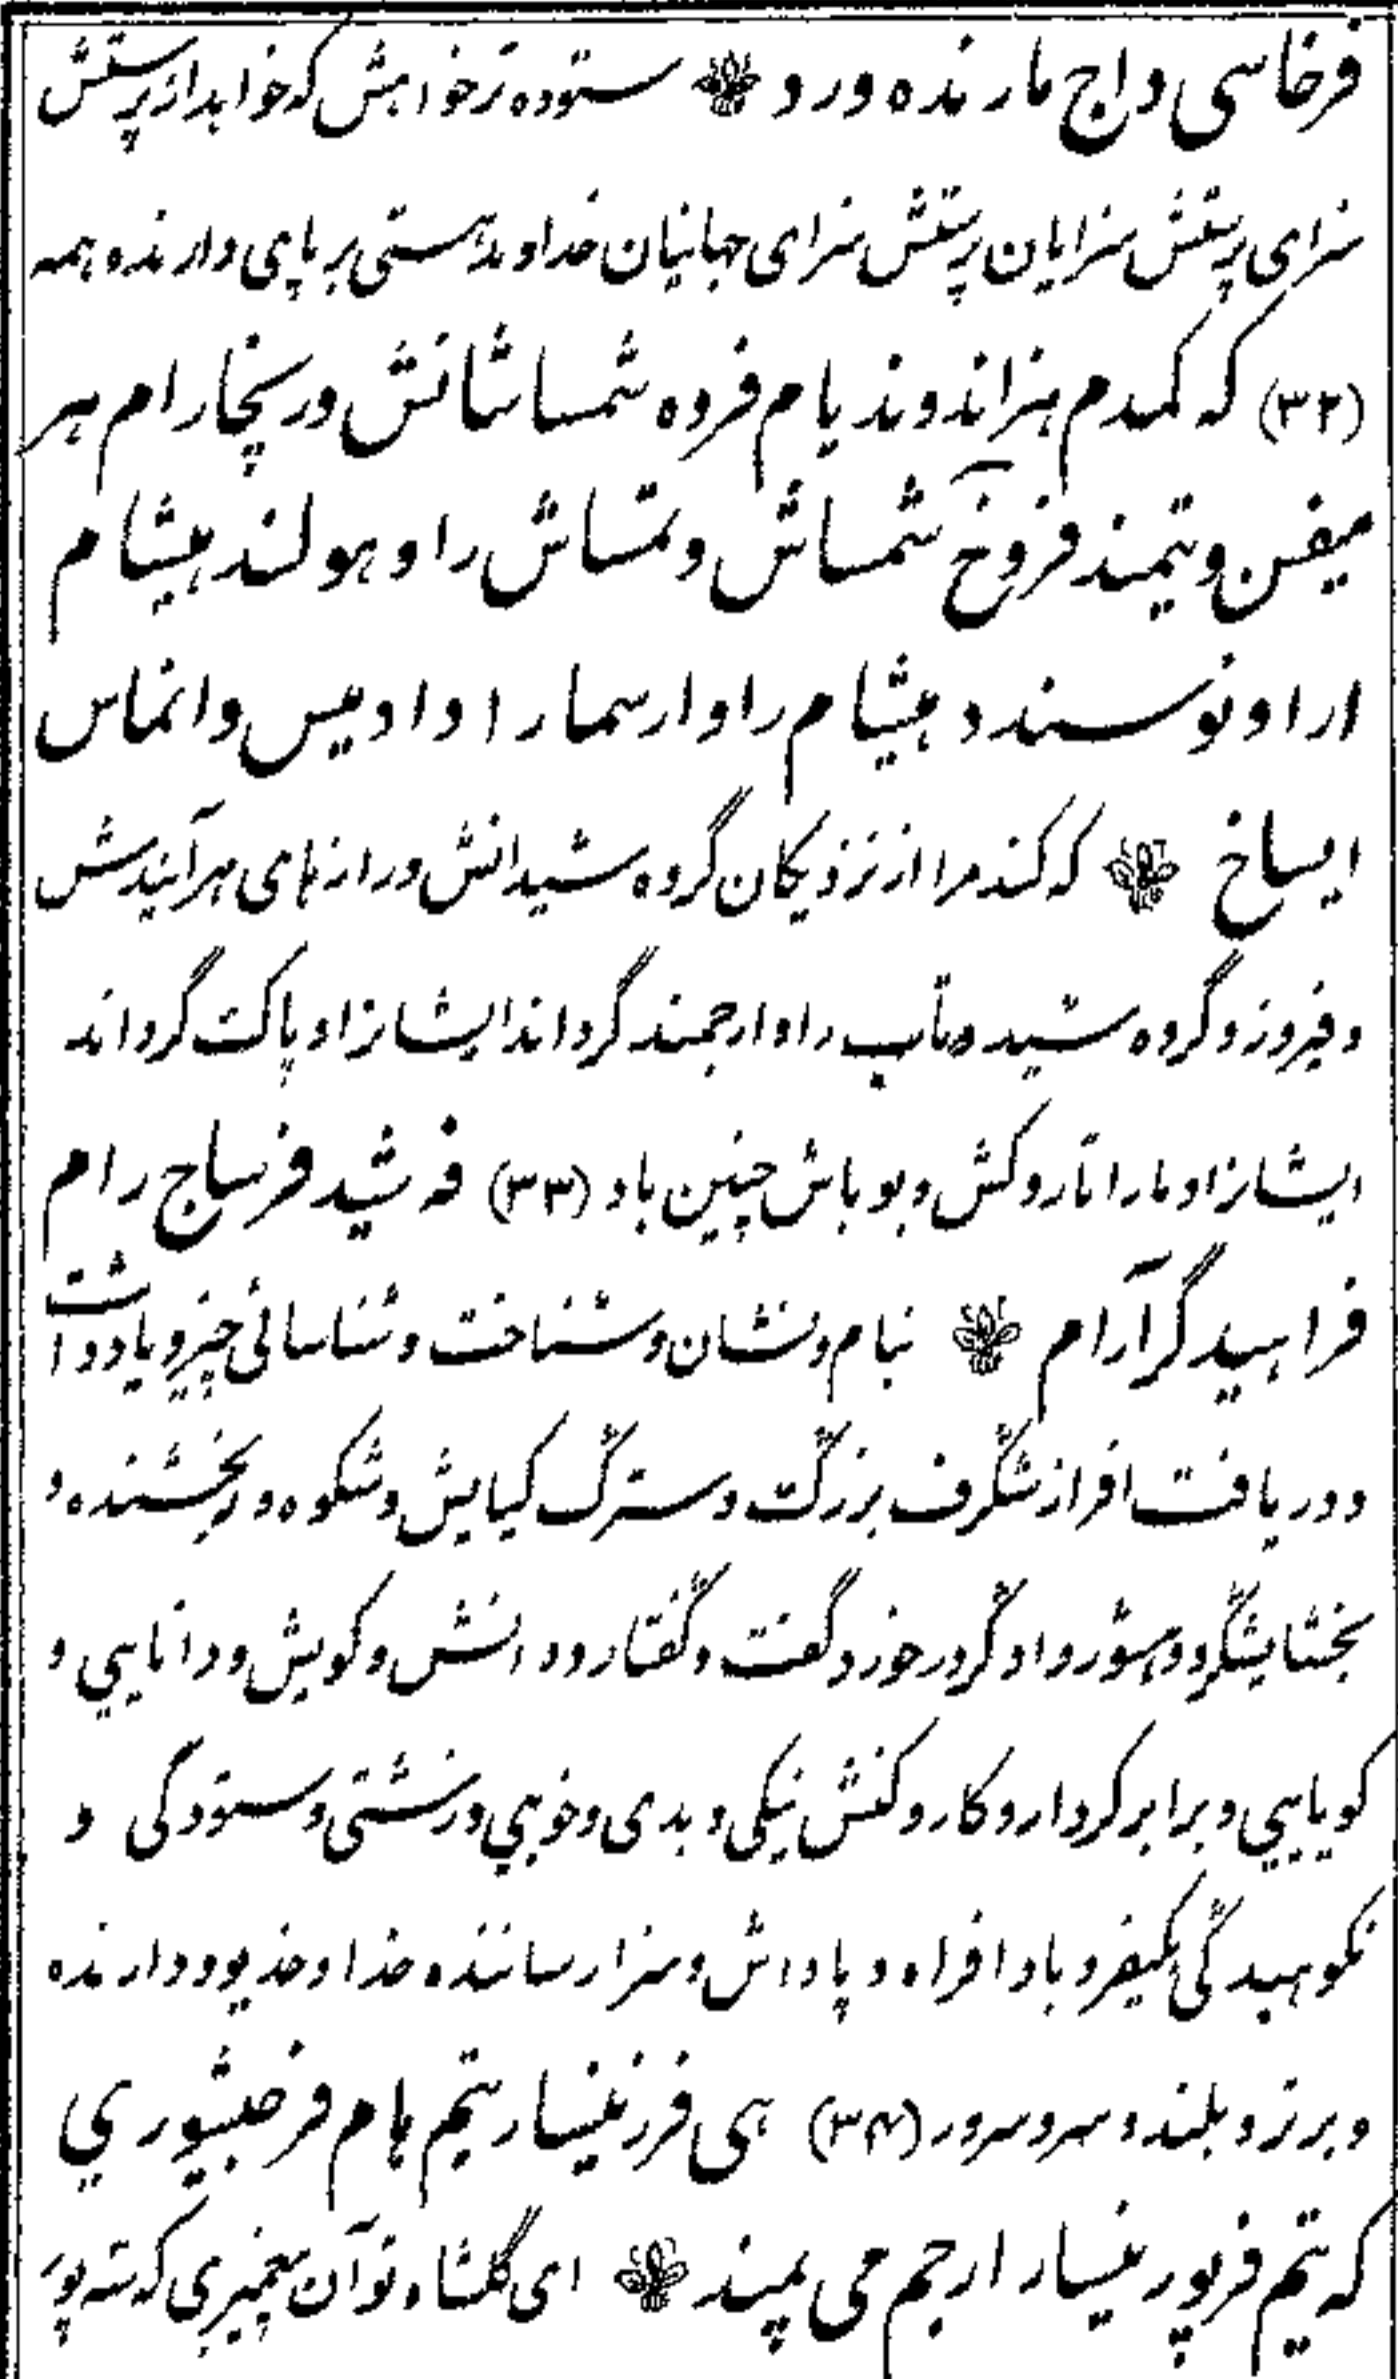 فرخاسی و اج مارنده ورو ستوده تر خواهش که خواهد از پرستش
سزای پرستش سزایان پرستش سزای جهانیان خداوند هستی بر پای دارنده همه
(۳۲) که کمدم هنراندوند یام فروه شمساشانش ور سخارام هر
میفن و تیمند فروخ شمساش و تمتاش را و هولند هیشام
ار او نوسندد هیشام را و ارسمار ا و ا و میس و انماس
ایساخ که کند مرا از نزدیکان گروه شیدانش و رازهای هرآیندش
و فیروز و گروه شید و تاب را و ارجمند گرداند ایشانرا و پاک گرداند
ایشانرا و مارا تا روکش و بو باش چنین باد (۳۳) فه شید فرساج رام
فراهید گرآرام بنام و نشان و شناخت و شناسائی چیز و یادداشت
و دریافت افراز شگرف بزرگ و سترگ کیایش و شکوه و بخشنده و
بخشایشگر و مهرور و دادگر در خورد گفت و گفتار و دانش و گویش و دانایی و
گویایی و برابر کردار و کار و کنش نیکی و بدی و خوبی و زشتی و ستودگی و
نکوهیدگی کیفر و بادافراه و پاداش و سزا رساننده خدا و خدیو و دارنده
و برتر و بلند و سر و سرور (۳۴) هی فرزنیسار تیم هام فرجیشوری
که تیم فرپور نیسار ارجم می پمیند ای گلشاه تو آن پیغمبری که سه پور